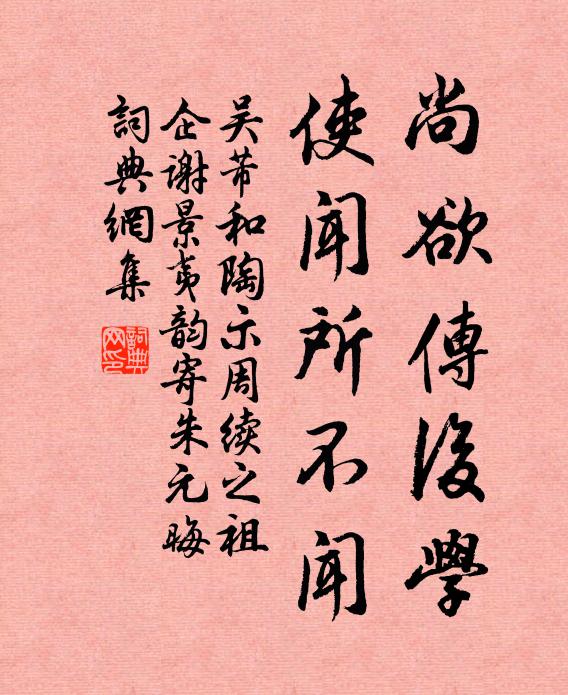 尚欲傳後學
使聞所不聞
吴芾和陶示周续之祖
企谢景夷韵寄朱元晦
詞典網集
詞典网印